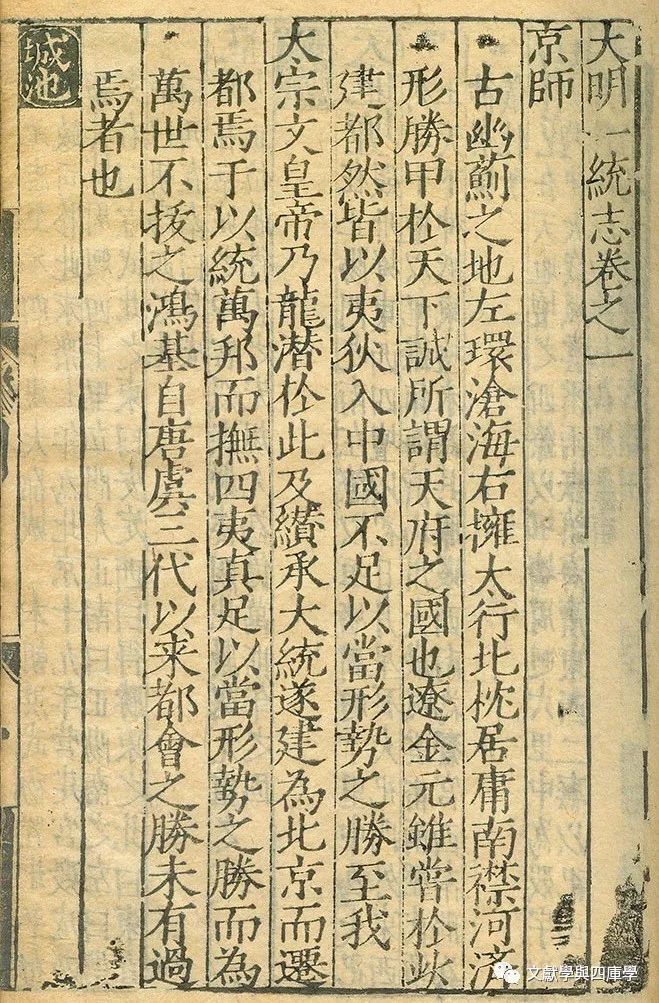 大明一統志卷之一
京師
古幽薊之地左環滄海右擁太行北枕居庸南襟河濟
形勝甲於天下誠所謂天府之國也遼金元雖嘗於此
建都然皆以夷狄入中國不足以當形勢之勝至我
太宗文皇帝乃龍潜於此及纉承大統遂建為北京而遷
都焉于以統萬邦而撫四夷真足以當形勢之勝而為
萬世不拔之鴻基自唐虞三代以来都會之勝未有過
焉者也
城池
文獻學與四庫學